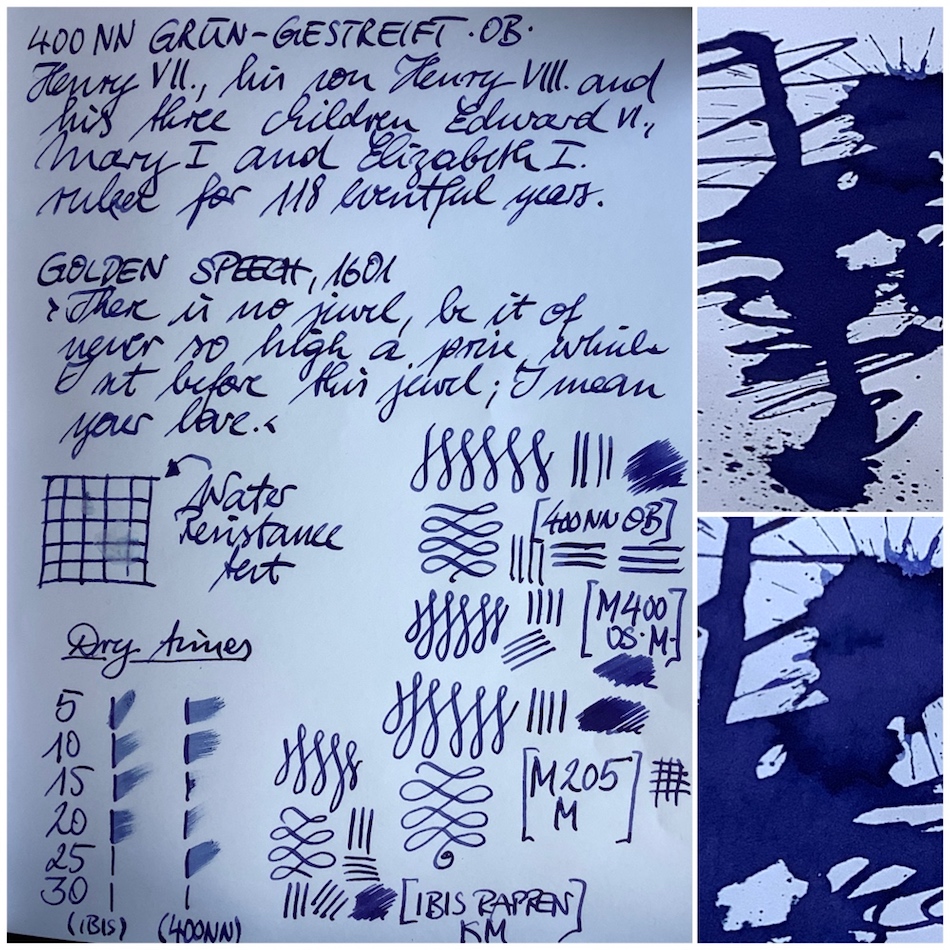 400 NN GRÜN-GESTREIFT · OB ·
Henry VII., his son Henry VIII. and
his three children Edward VI.,
Mary I and Elizabeth I.
ruled for 118 eventful years.
GOLDEN SPEECH, 1601
›There is no jewel, be it of
never so high a price, which
I set before this jewel; I mean
your love.‹
Water
resistance
test
[400NN OB]
[M400
OS·M·]
Dry times
5
10
15
20
25
30
(IBIS) (400NN)
[M205
M]
[IBIS RAPPEN]
KM